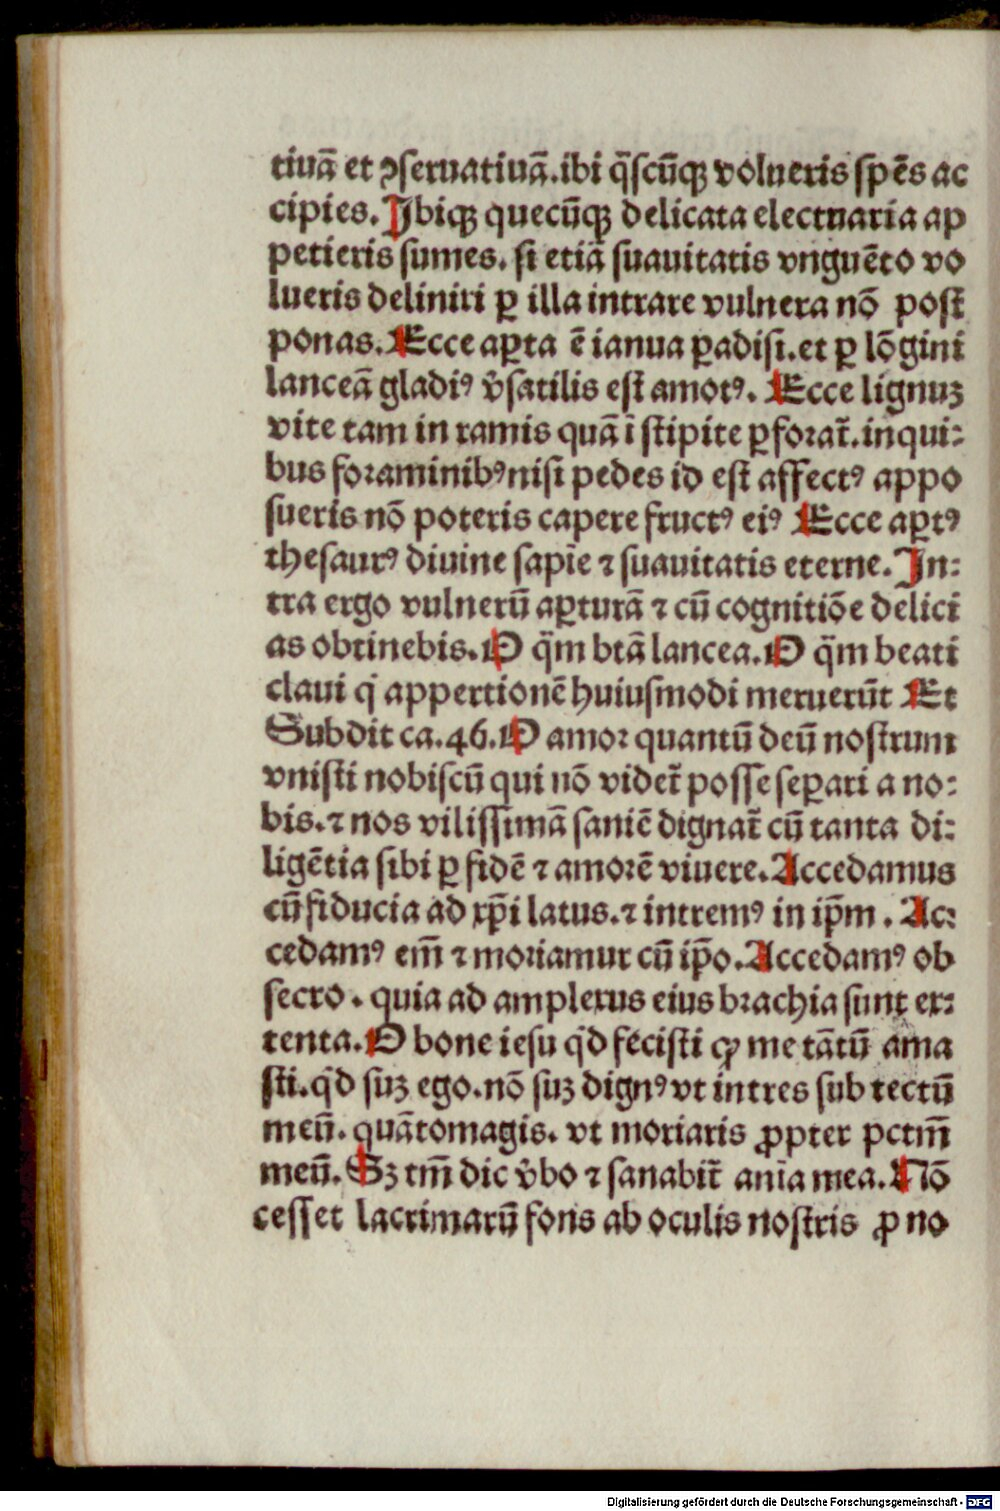 tiuā et ꝯseruatiuā.ibi q̄scūqꝫ volueris spēs ac
cipies.Ibiqꝫ quecūqꝫ delicata electuaria ap
petieris sumes. si etiā suauitatis vnguēto vo
lueris deliniri ꝑ illa intrare vulnera nō post
ponas.Ecce aꝑta ē ianua ꝑadisi.et ꝑ lōgini
lanceā gladiꝰ v̄satilis est amotꝰ. Ecce lignuꝫ
vite tam in ramis quā ī stipite ꝑforat̄.in qui⸗
bus foraminibꝰ nisi pedes id est affectꝰ appo
sueris nō poteris capere fructꝰ eiꝰ Ecce aꝑtꝰ
thesaurꝰ diuine sapīe ⁊ suauitatis eterne.In⸗
tra ergo vulnerū aꝑturā ⁊ cū cognitiōe delici
as obtinebis.O q̄m btā lancea.O q̄m beati
claui qͥ appertionē huiusmodi meruerūt Et
Subdit ca.46.O amor quantū deū nostrum
vnisti nobiscū qui nō videt̄ posse seꝑari a no⸗
bis.⁊ nos vilissimā saniē dignat̄ cū tanta di⸗
ligētia sibi ꝑ fidē ⁊ amorē viuere.Accedamus
cū fiducia ad xp̄i latus.⁊ intremꝰ in ip̄m . Ac⸗
cedamꝰ em̄ ⁊ moriamur cū ip̄o.Accedamꝰ ob
secro . quia ad amplexus eius brachia sunt ex⸗
tenta.O bone iesu qͥd fecisti ꝙ me tātū ama
sti.qͥd suꝫ ego.nō suꝫ dignꝰ vt intres sub tectū
meū. quātomagis. vt moriaris ꝓpter pctm̄
meū. Sꝫ tm̄ dic v̄bo ⁊ sanabit̄ anīa mea.Nō
cesset lacrimarū fons ab oculis nostris ꝓ no
Digitalisierung gefördert durch die Deutsche Forschungsgemeinschaft - DFG